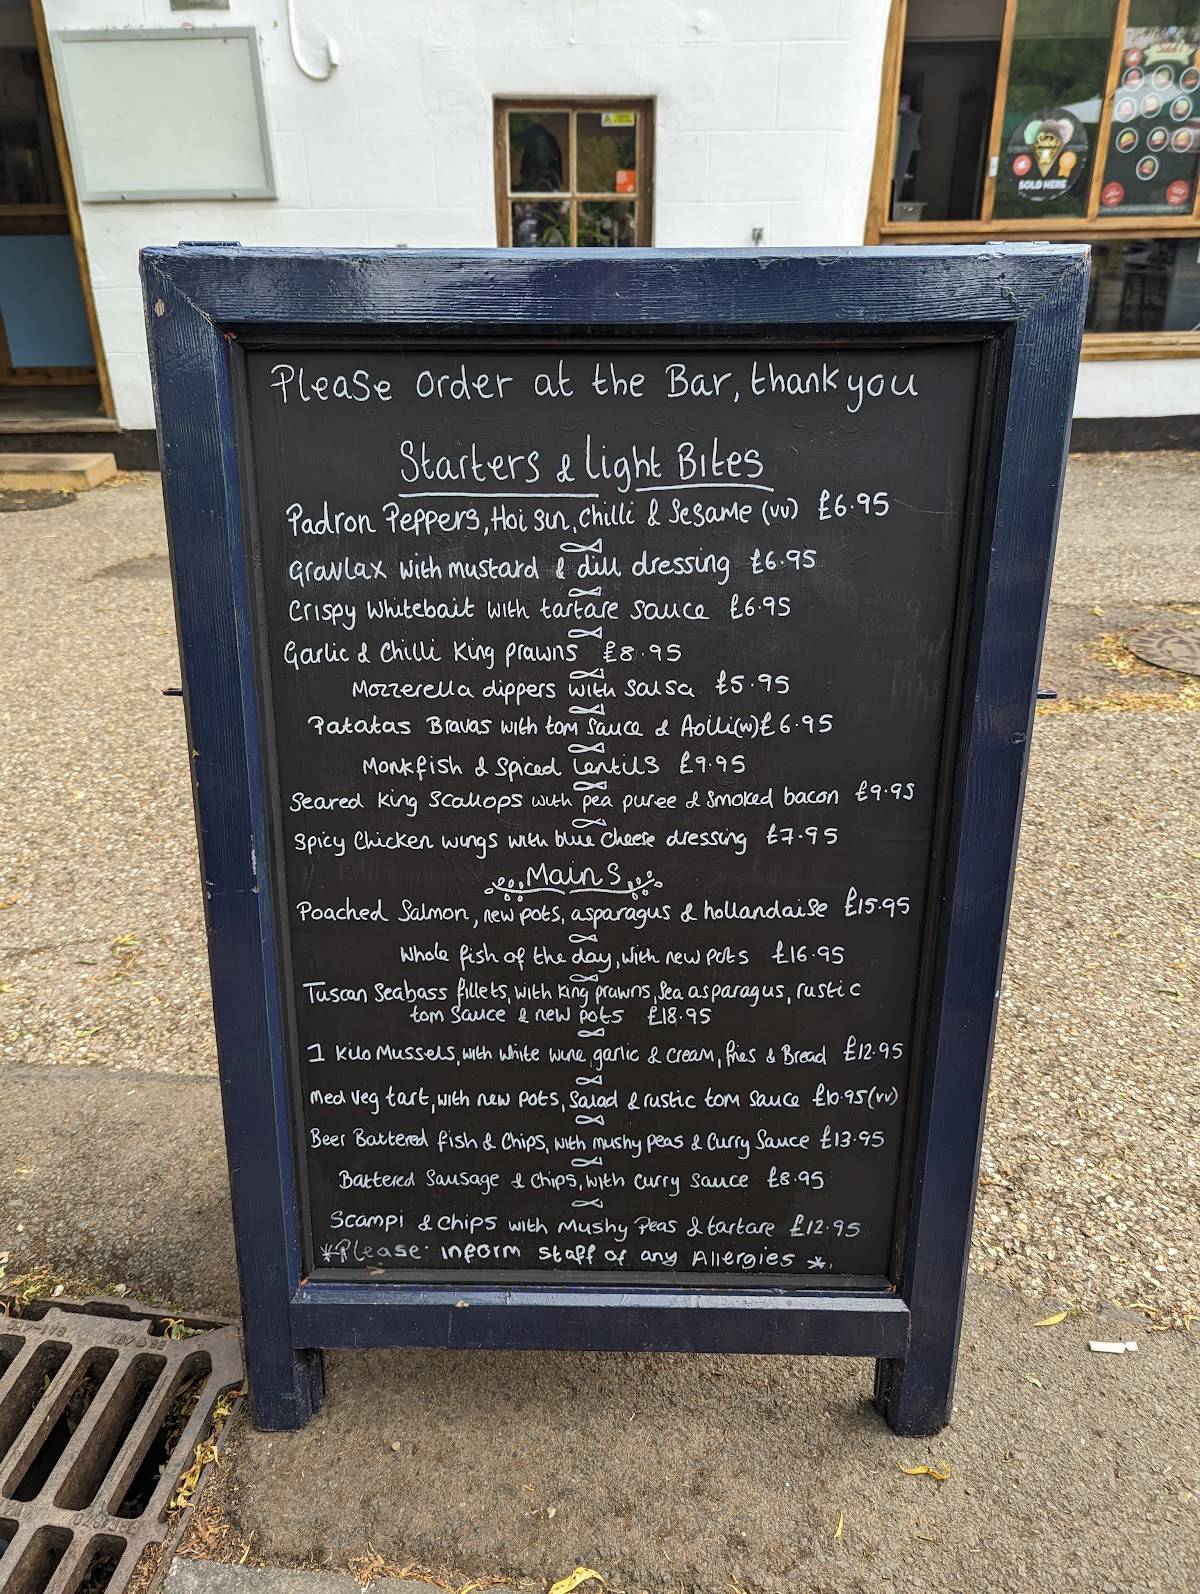 Please order at the Bar, thank you
Starters & Light Bites
Padron Peppers, Hoi sun, Chilli & Sesame (vv) £6.95
Gravlax with mustard & dill dressing £6.95
Crispy Whitebait with tartare sauce £6.95
Garlic & Chilli King prawns £8.95
Mozzerella dippers with salsa £5.95
Patatas Bravas with tom sauce & Aolli(vv) £6.95
Monkfish & Spiced Lentils £9.95
Seared King Scallops with pea puree & smoked bacon £9.95
Spicy Chicken wings with blue cheese dressing £7.95
Mains
Poached Salmon, new pots, asparagus & hollandaise £15.95
Whole fish of the day, with new pots £16.95
Tuscan Seabass fillets, with King prawns, Sea asparagus, rustic
tom sauce & new pots £18.95
1 Kilo Mussels, with white wine, garlic & cream, fries & Bread £12.95
Med veg tart, with new pots, salad & rustic tom sauce £10.95 (vv)
Beer Battered fish & Chips, with mushy peas & Curry Sauce £13.95
Battered Sausage & chips, with curry sauce £8.95
Scampi & chips with Mushy Peas & tartare £12.95
*Please inform staff of any Allergies *
SOLD HERE